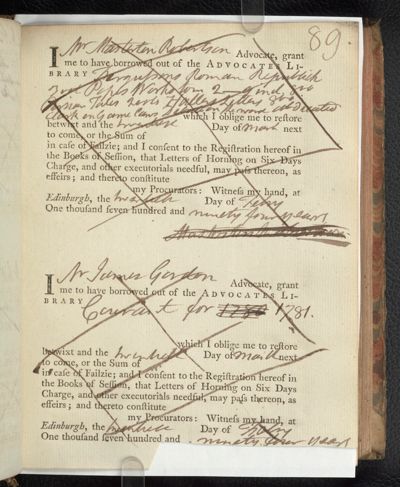 89.
I Mr Masterton Robertson Advocate, grant
me to have borrowed out of the ADVOCATES LI-
BRARY Fergussons Roman Republick
Popes Works
Persian Tales
Clark on Game laws which I oblige me to restore
betwixt and the Day of March next
to come, or the Sum of
in case of Failzie; and I consent to the Registration hereof in
the Books of Session, that Letters of Horning on Six Days
Charge, and other executorials needful, may pass thereon, as
effeirs; and thereto constitute
my Procurators: Witness my hand, at
Edinburgh, the twelfth Day of Feby
One thousand seven hundred and ninety four years
I Mr James Gordon Advocate, grant
me to have borrowed out of the ADVOCATES LI-
BRARY Courant for 1780 1781.
which I oblige me to restore
betwixt and the Day of March next
to come, or the Sum of
in case of Failzie; and I consent to the Registration hereof in
the Books of Session, that Letters of Horning on Six Days
Charge, and other executorials needful, may pass thereon, as
effeirs; and thereto constitute
my Procurators: Witness my hand, at
Edinburgh, the Day of Feby
One thousand seven hundred and ninety four years